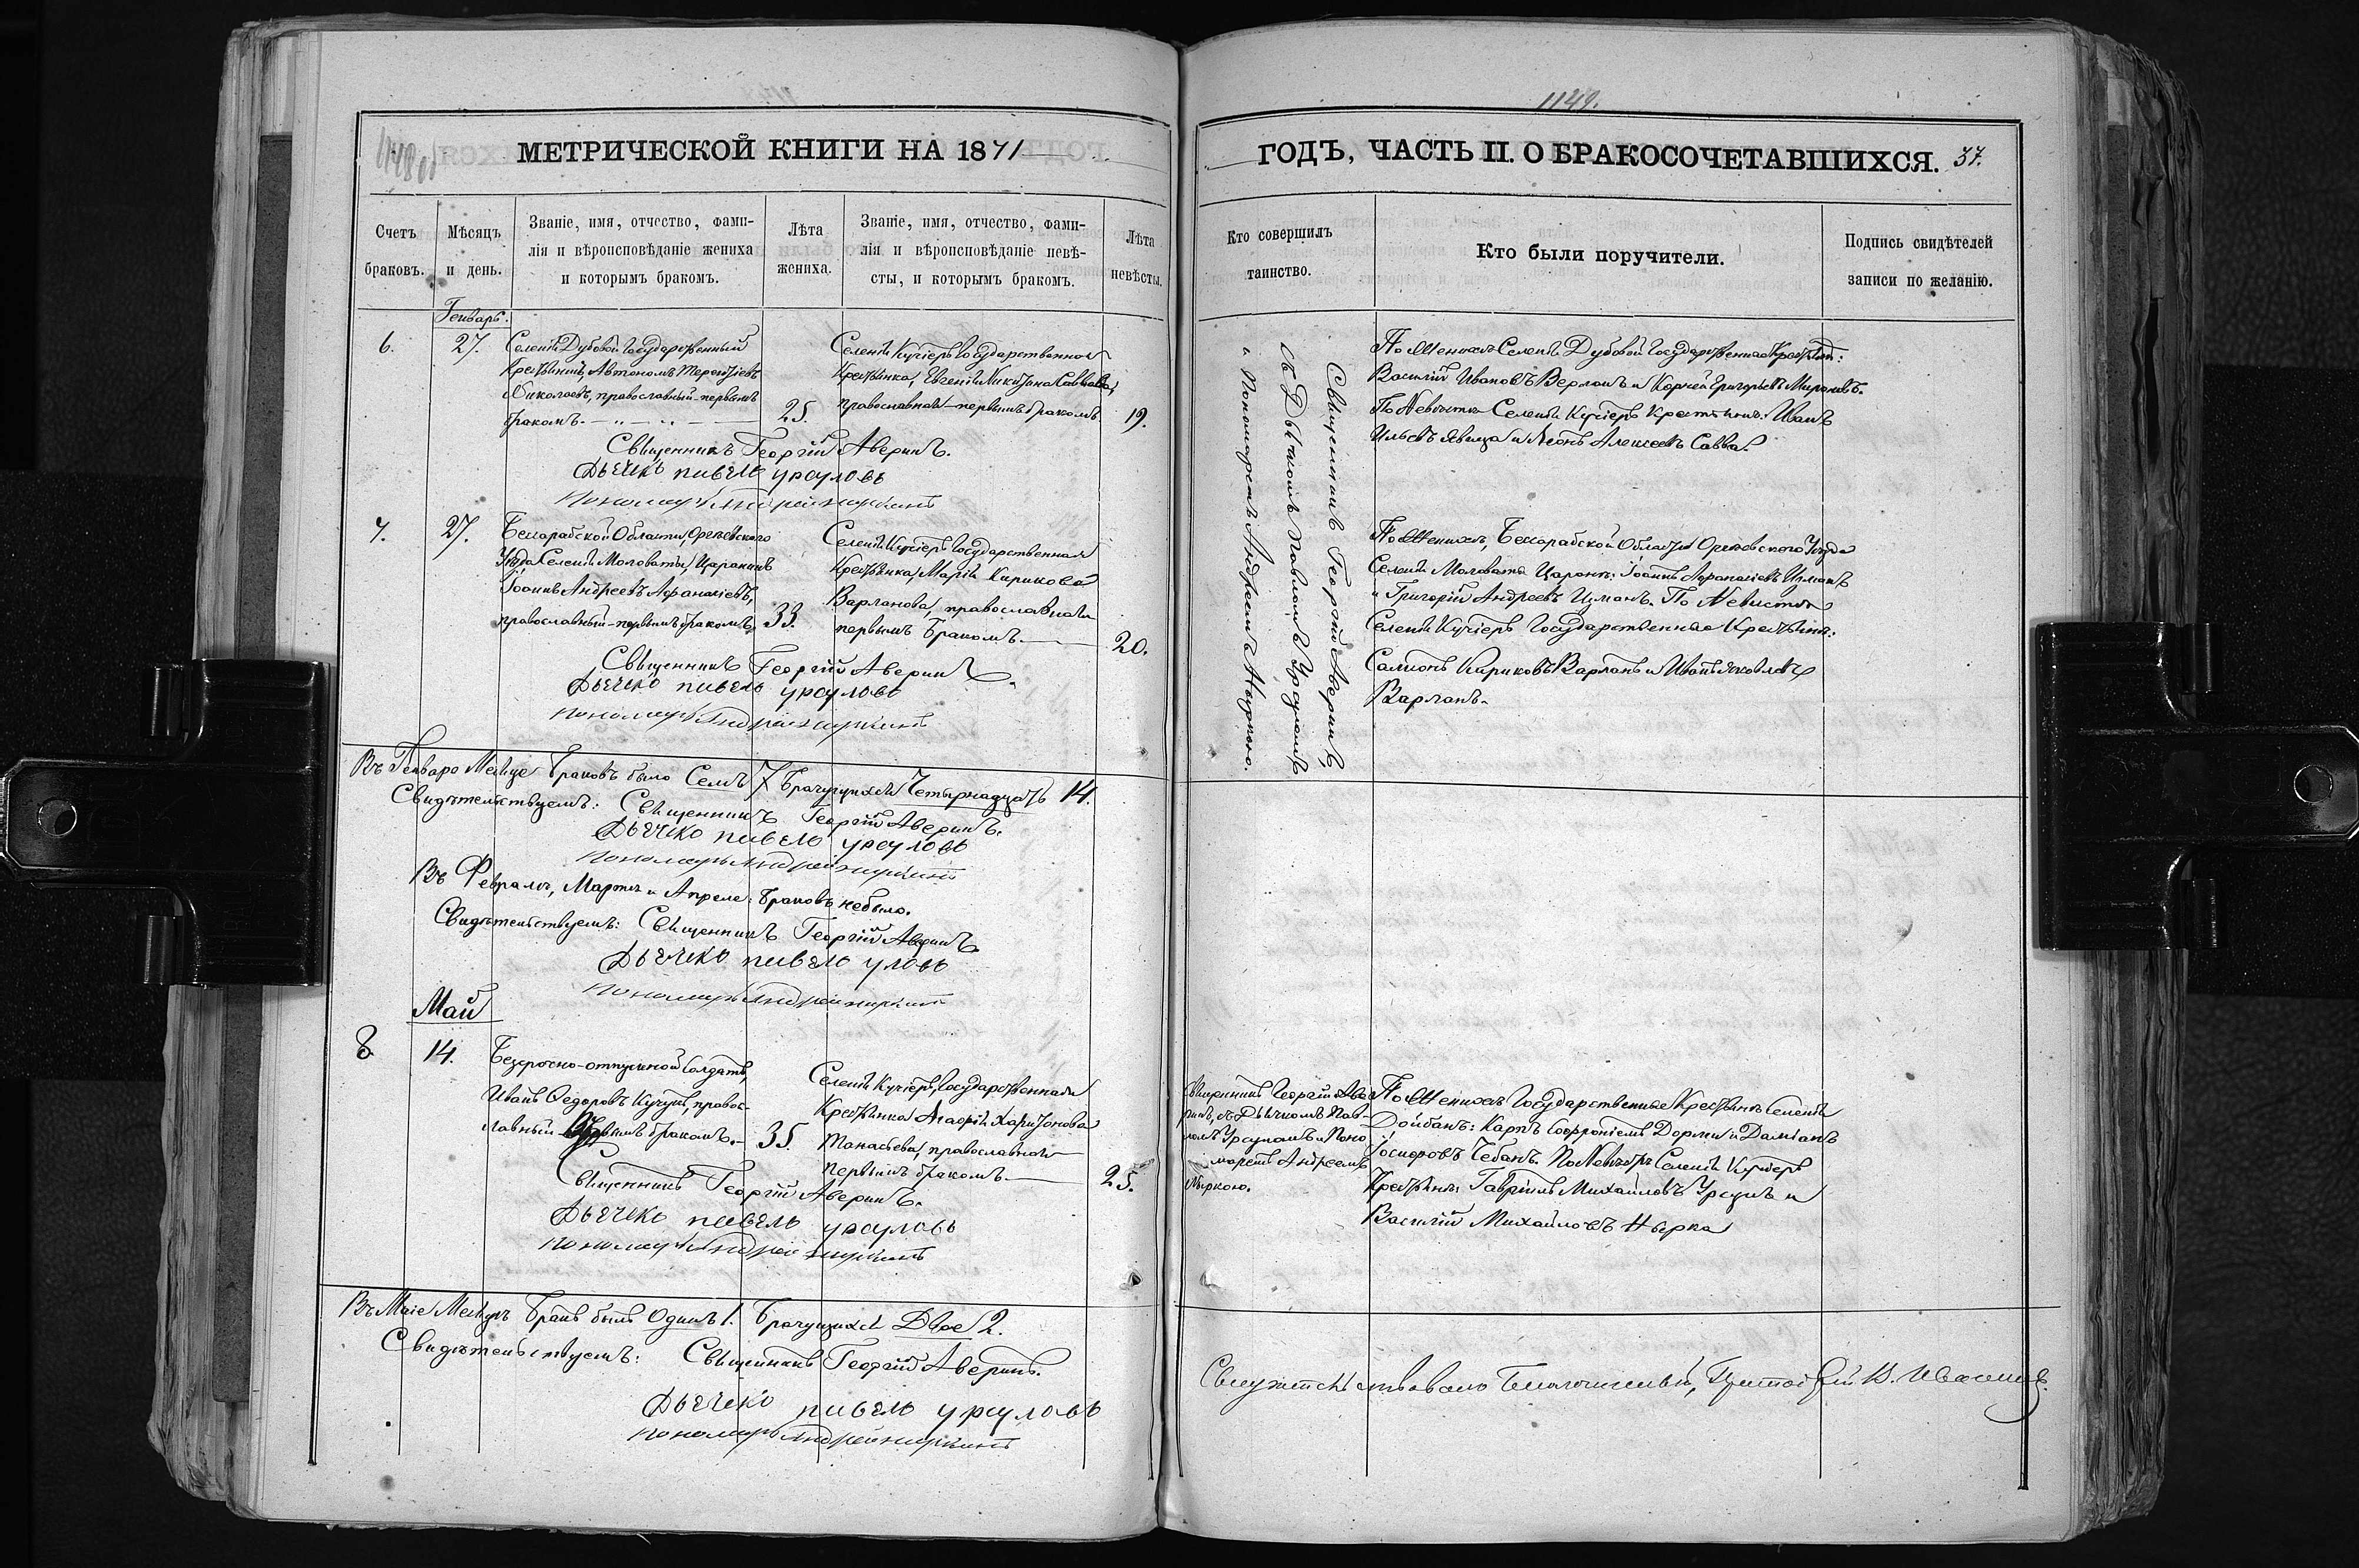 МЕТРИЧЕСКОЙ КНИГИ НА 1871
Счетъ браковъ.
Мѣсяцъ и день.
Званіе, имя, отчество, фами-
лія и вѣроисповѣданіе жениха
и которымъ бракомъ.
Лѣта жениха.
Званіе, имя, отчество, фами-
лія и вѣроисповѣданіе невѣ-
сты, и которымъ бракомъ.
Лѣта невѣсты.
Генварь.
6.
27.
Селенія Дубовой Государственный
Крестьянинъ, Автономъ Терентіевъ
Николаевъ, православный первымъ
бракомъ.
25.
Селенія Кучіеръ Государственная
Крестьянка, Евгенія Никитина Саввова,
православная первымъ бракомъ.
19.
Священникъ Георгій Аверинъ.
Дьячекъ Павелъ Урсуловъ
Пономарь Андрей
7.
27.
Бессарабской Области Оргеевского
Уезда Селенія Моловаты, Царанинъ
Іоаннъ Андреевъ Афанасіевъ,
православный первымъ бракомъ.
33.
Селенія Кучіеръ Государственная
Крестьянка, Марія Кирикова
Варланова, православная
первымъ бракомъ.
20.
Священникъ Георгій Аверинъ.
Дьячекъ Павелъ Урсуловъ
Пономарь Андрей
Въ Генваре Месяце браковъ было Семъ 7 Брачущихся Четырнадцать 14.
Свидѣтельствуемъ: Священникъ Георгій Аверинъ.
Дьячекъ Павелъ Урсуловъ
Пономарь Андрей
Въ Февралѣ, Мартѣ и Апреле: браковъ небыло.
Свидѣтельствуемъ: Священникъ Георгій Аверинъ
Дьячекъ Павелъ
Пономарь Андрей
Май
8
14.
Безсрочно-отпускной Солдатъ,
Иванъ Федоровъ Кучукъ, правос-
лавный первымъ бракомъ.
35.
Селенія Кучіеръ, Государственная
Крестьянка Агафія Харитонова
Танасьева, православная
первымъ бракомъ.
25.
Священникъ Георгій Аверинъ.
Дьячекъ Павелъ Урсуловъ
Пономарь Андрей
Въ Маіе Месяцѣ Бракъ былъ Одинъ 1. Брачущихся Двое 2.
Свидѣтельствуемъ: Священникъ Георгій Аверинъ.
Дьячекъ Павелъ Урсуловъ
Пономарь Андрей
1149.
ГОДЪ, ЧАСТЬ II. О БРАКОСОЧЕТАВШИХСЯ. 37.
Кто совершилъ таинство.
Кто были поручители.
Подпись свидѣтелей
записи по желанію.
Священникъ Георгій Аверинъ,
съ Дьячкомъ Павломъ Урсуломъ
и Пономаремъ Андреемъ Ныркою.
По Женихѣ Селенія Дубовой Государственные Крестьян:
Василій Ивановъ Верланъ и Корней Григорьевъ
По Невѣстѣ Селенія Кучіеръ Крестьяне: Иванъ
Ильевъ и Леонъ Алексеевъ Савва.
По Женихѣ, Бессарабской Области Оргеевского Уезда
Селенія Моловата Царане: Іоаннъ Афанасіевъ
и Григорій Андреевъ По Невестѣ
Селенія Кучіеръ Государственные Крестьяне:
Самсонъ Кириковъ Варланъ и Иванъ Яковлевъ
Варланъ.
Священникъ Георгій Аве-
ринъ, съ Дьячкомъ Пав-
ломъ Урсуломъ и Поно-
маремъ Андреемъ
Ныркою.
По Женихѣ Государственные Крестьяне Селенія
Дойбанъ: Карпъ Софроніевъ и Даміанъ
Іосифовъ Чебанъ. По Невѣстѣ Селенія Кучіеръ
Крестьяне: Гавріилъ Михайловъ Урсулъ и
Василій Михайловъ Нырка